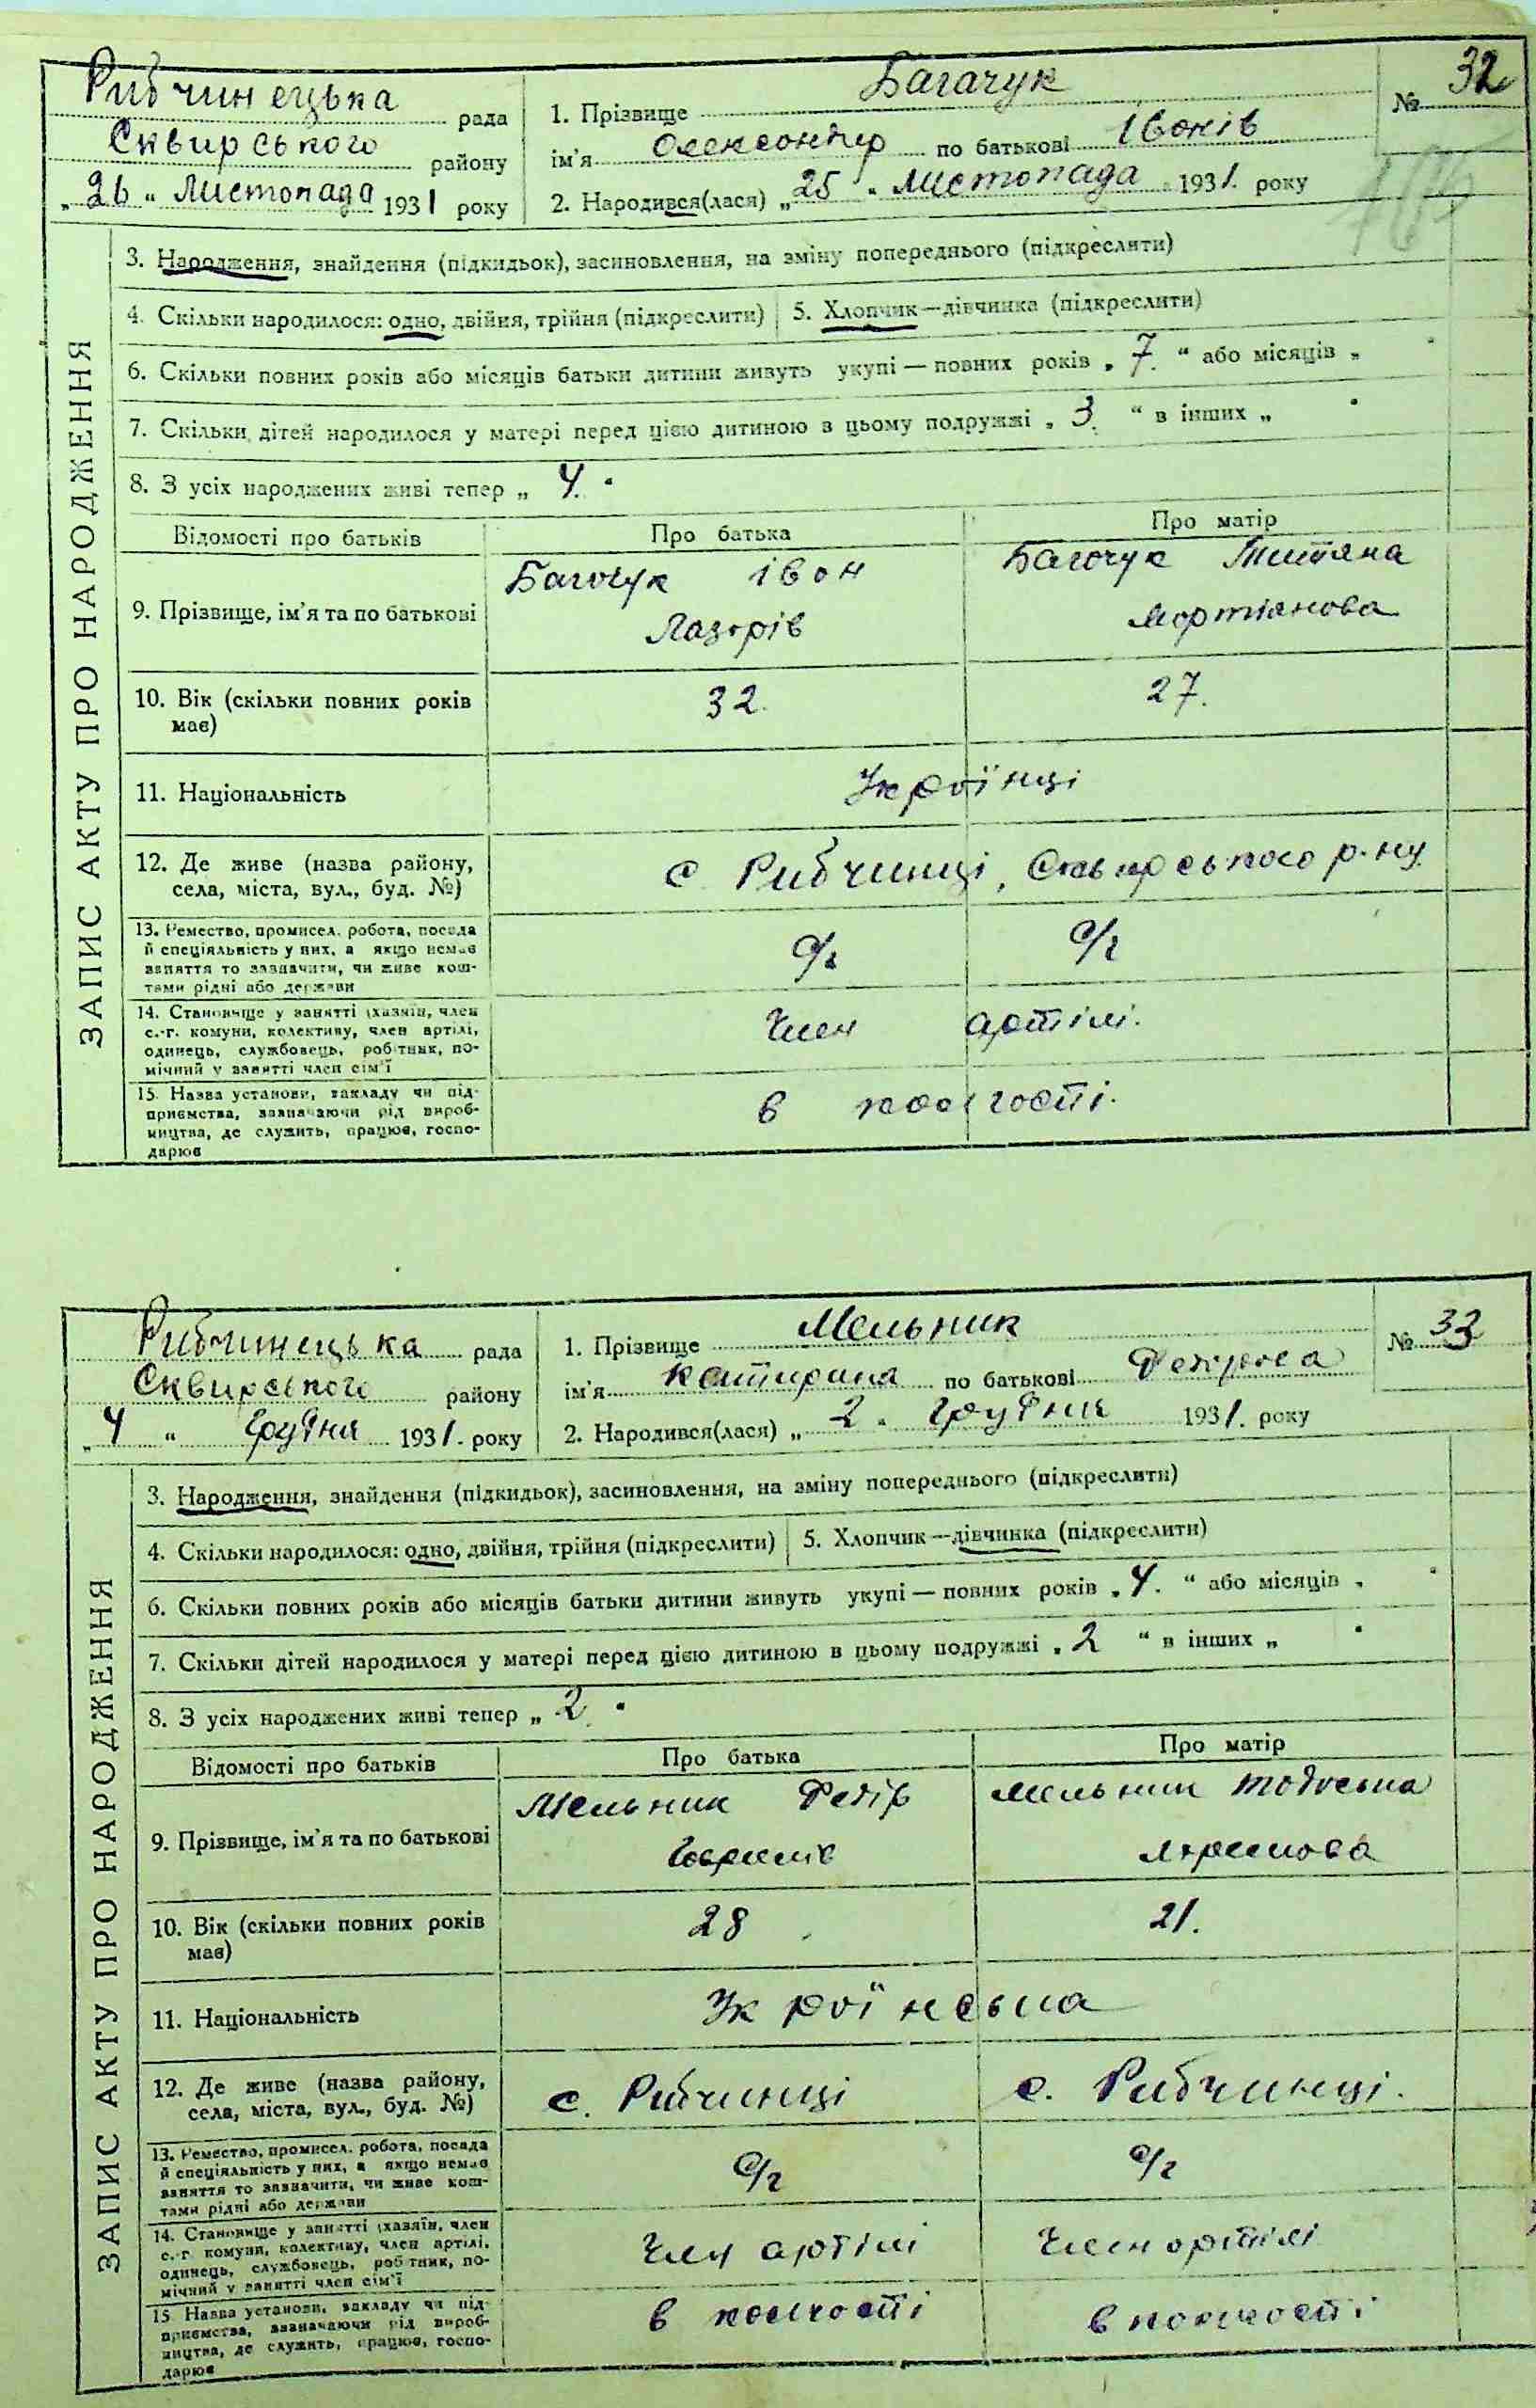 Рибчинецька рада
Сквирського району
„26“ Листопада 1931 року
1. Прізвище Багачук
№ 32
ім'я Олександер по батькові Іванів
2. Народився(лася) „25“ Листопада 1931. року
ЗАПИС АКТУ ПРО НАРОДЖЕННЯ
3. Народження, знайдення (підкидьок), засиновлення, на зміну попереднього (підкреслити)
4. Скільки народилося: одно, двійня, трійня (підкреслити)
5. Хлопчик—дівчинка (підкреслити)
6. Скільки повних років або місяців батьки дитини живуть укупі — повних років „7.“ або місяців „
7. Скільки дітей народилося у матері перед цією дитиною в цьому подружжі „3.“ в інших „
8. З усіх народжених живі тепер „4.
Відомості про батьків
Про батька
Про матір
9. Прізвище, ім'я та по батькові
Багачук Іван
Лазарів
Багачук Титяна
Мартианова
10. Вік (скільки повних років
має)
32.
27.
11. Національність
Українці
12. Де живе (назва району,
села, міста, вул., буд. №)
с Рибчинці, Сквирського р-ну
13. Ремество, промисел. робота, посада
й спеціяльність у них, а якщо немає
заняття то зазначити, чи живе кош-
тами рідні або держави
с/г
с/г
14. Становище у занятті (хазяїн, член
с.-г. комуни, колективу, член артілі,
одинець, службовець, робітник, по-
мічний у занятті член сім'ї
Член артілі.
15. Назва установи, закладу чи під-
приємства, зазначаючи рід вироб-
ництва, де служить, працює, госпо-
дарює
в
Рибчинецька рада
Сквирського району
„4“ Грудня 1931. року
1. Прізвище Мельник
№ 33
ім'я Катирина по батькові
2. Народився(лася) „2“ Грудня 1931. року
ЗАПИС АКТУ ПРО НАРОДЖЕННЯ
3. Народження, знайдення (підкидьок), засиновлення, на зміну попереднього (підкреслити)
4. Скільки народилося: одно, двійня, трійня (підкреслити)
5. Хлопчик—дівчинка (підкреслити)
6. Скільки повних років або місяців батьки дитини живуть укупі — повних років „4.“ або місяців „
7. Скільки дітей народилося у матері перед цією дитиною в цьому подружжі „2“ в інших „
8. З усіх народжених живі тепер „2.
Відомості про батьків
Про батька
Про матір
9. Прізвище, ім'я та по батькові
Мельник Федір
Гаврилів
Мельник Тодоська
10. Вік (скільки повних років
має)
28
21.
11. Національність
Українська
12. Де живе (назва району,
села, міста, вул., буд. №)
с. Рибчинці
с. Рибчинці.
13. Ремество, промисел. робота, посада
й спеціяльність у них, а якщо немає
заняття то зазначити, чи живе кош-
тами рідні або держави
с/г
с/г
14. Становище у занятті (хазяїн, член
с.-г. комуни, колективу, член артілі,
одинець, службовець, робітник, по-
мічний у занятті член сім'ї
Член артілі
Член артілі
15. Назва установи, закладу чи під-
приємства, зазначаючи рід вироб-
ництва, де служить, працює, госпо-
дарює
в
в